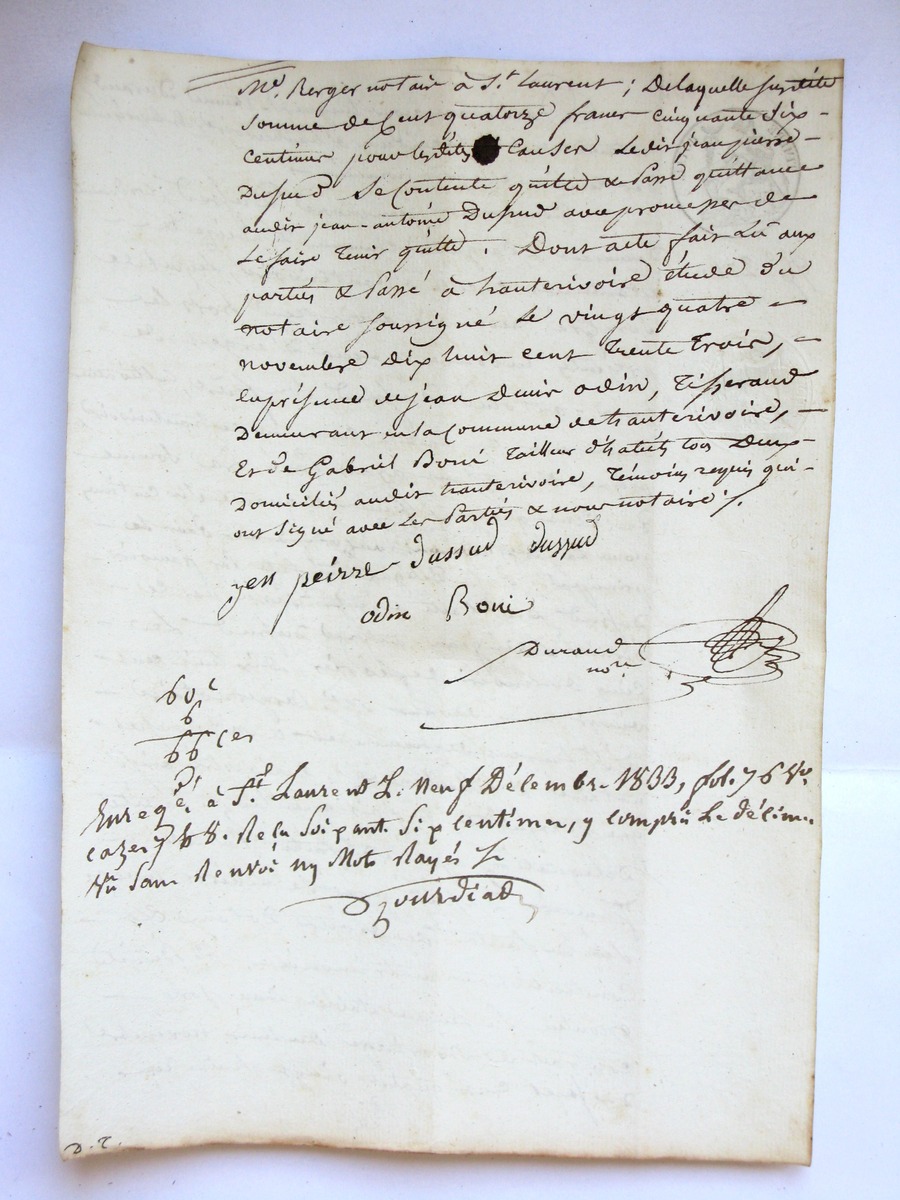 Me. Berger notaire à St. Laurent ; de laquelle susdite
somme de Cent quatorze francs cinquante six
centimes pour lesdites causes ledit jean pierre
Dussud se contente quitte & passe quittance
audit jean-antoine Dussud avec promesses de
le faire tenir quitte. Dont acte fait lû aux
partiés & passé à hauterivoire étude du
notaire soussigné le vingt quatre
novembre dix huit cent trente trois,
en présence de jean denis odin, tisserand
demeurant en la commune de hauterivoire,
Et de Gabriel Boni tailleur d'habits tous deux
domiciliés audit hauterivoire, témoins requis qui
ont signé avec les partiés & nous notaire ./.
jen peirre dussud dussud
odin Boni
Durand
nore
60c
6
66 ces
Enregé. à St. Laurent L. neuf Décembre 1833, fol. 76 Vo.
cazes 7 & 8. Reçu soixante six centimes, y compris le décime
Vu sans Renvoi ny Mots Rayés
D. T.